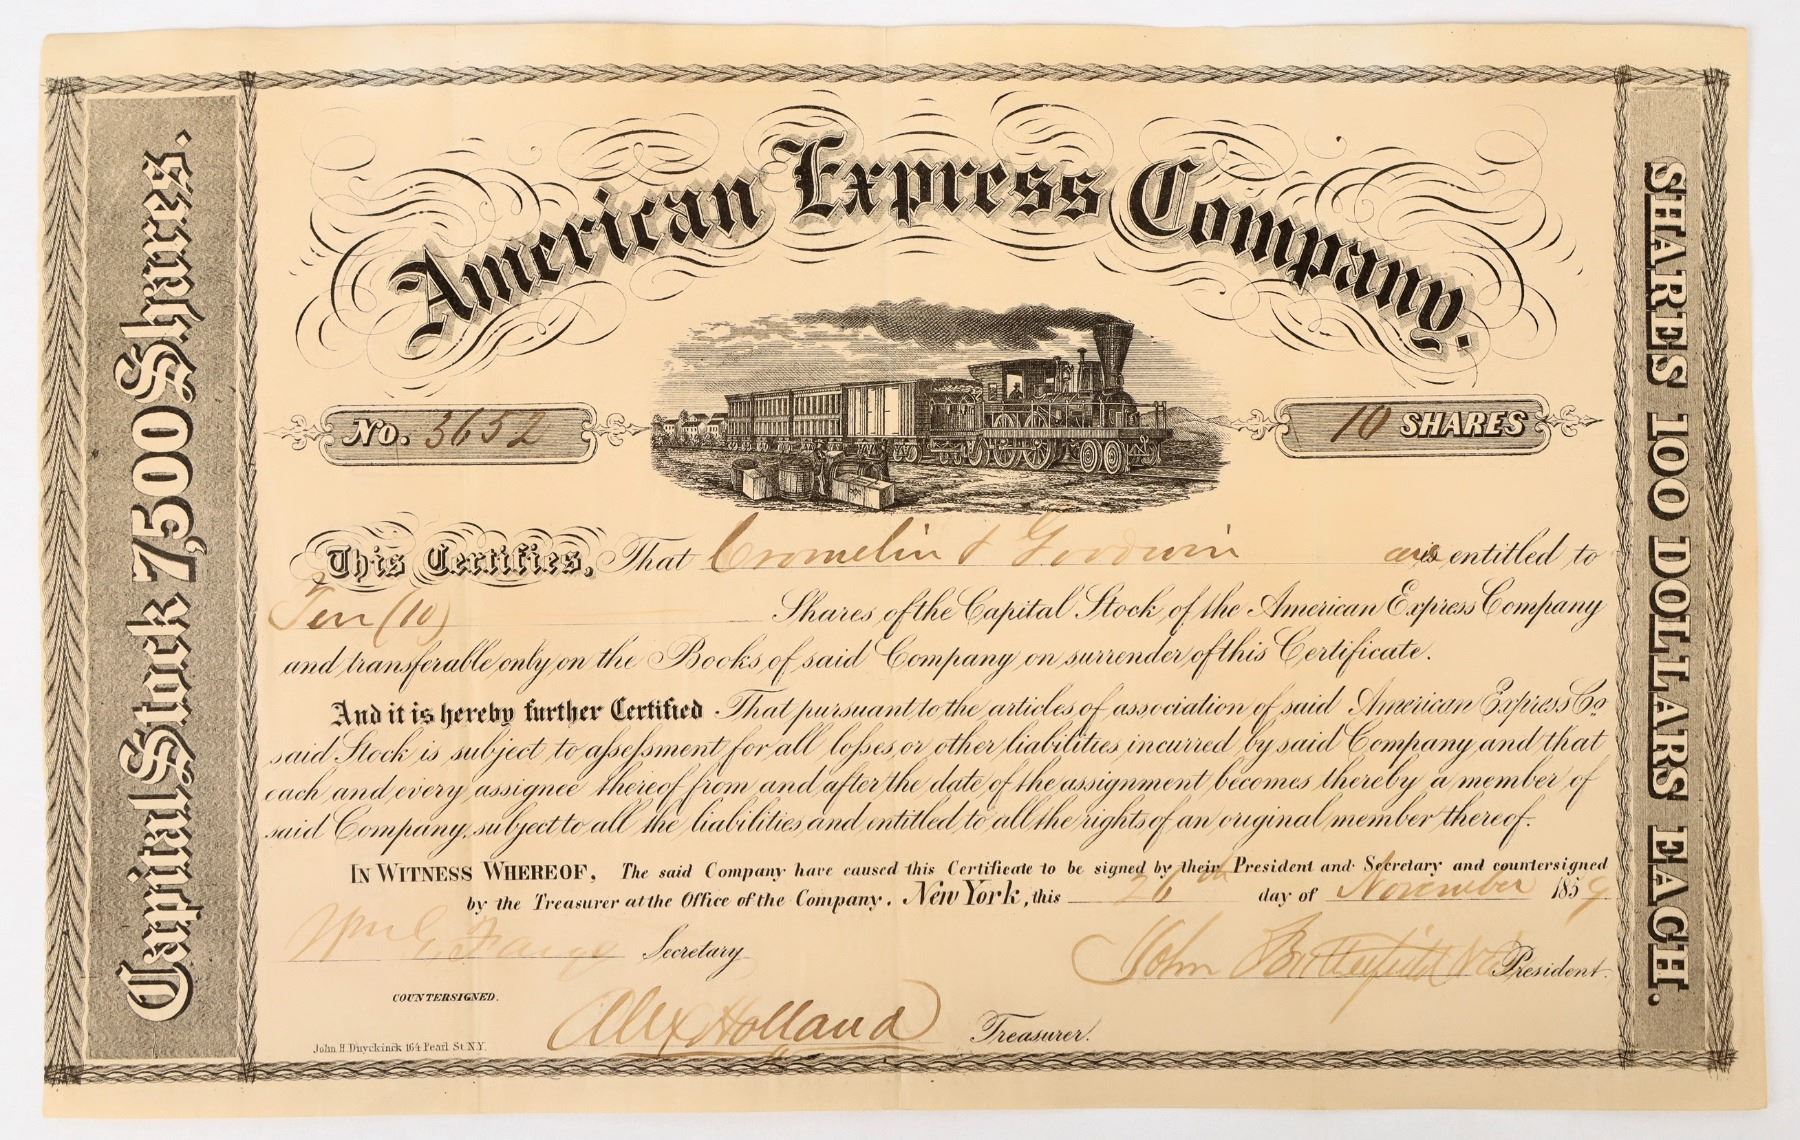 American Express Company.
Capital Stock 7,500 Shares.
No. 3652
10 SHARES
SHARES 100 DOLLARS EACH.
This Certifies, That Cromelin & Goodwin are entitled to
Ten (10) Shares of the Capital Stock of the American Express Company
and transferable only on the Books of said Company on surrender of this Certificate.
And it is hereby further Certified. That pursuant to the articles of association of said American Express Co
said Stock is subject to assessment for all losses, or other liabilities incurred by said Company and that
each and every assignee thereof from and after the date of the assignment becomes thereby a member of
said Company, subject to all the liabilities and entitled to all the rights of an original member thereof.
IN WITNESS WHEREOF, The said Company have caused this Certificate to be signed by their President and Secretary and countersigned
by the Treasurer at the Office of the Company. New York, this 26th day of November 1859
Wm G. Fargo Secretary
John Butterfield V. President.
COUNTERSIGNED.
Alex Holland Treasurer.
John H. Duyckinck 164 Pearl St. N.Y.